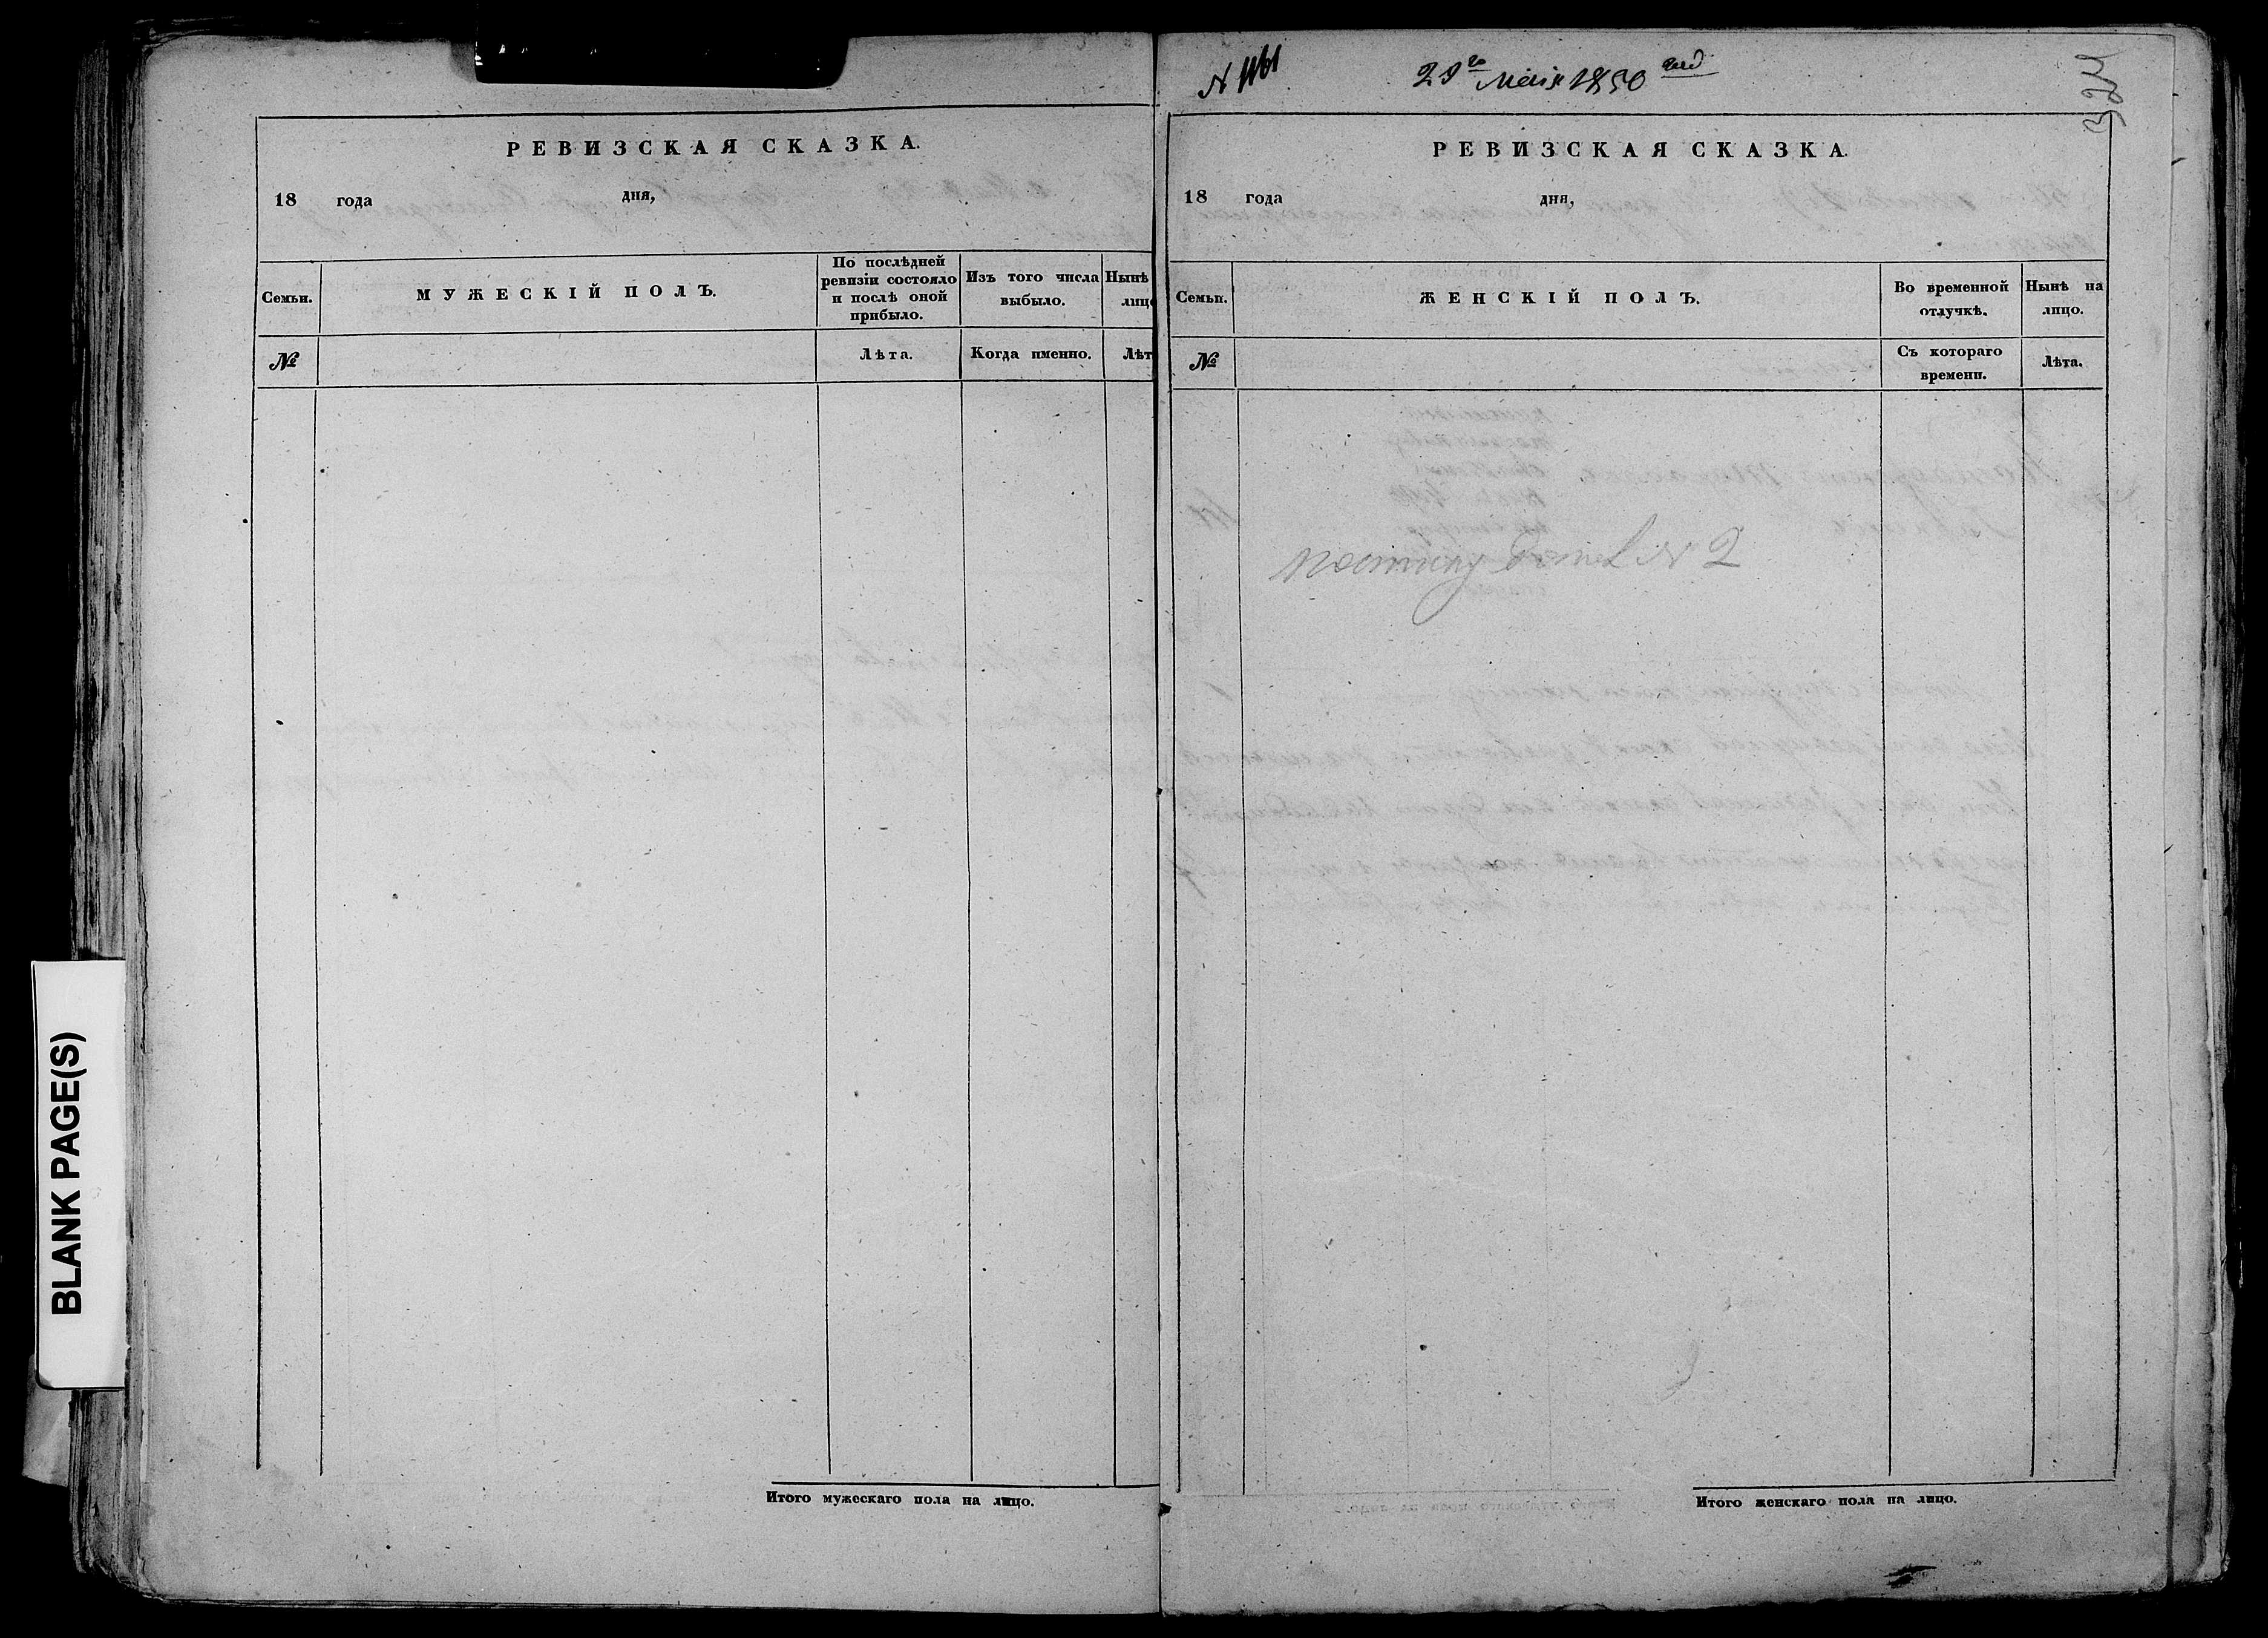 РЕВИЗСКАЯ СКАЗКА.
18 года дня,
Семьи.
МУЖЕСКІЙ ПОЛЪ.
По послѣдней
ревизіи состояло
и послѣ оной
прибыло.
Изъ того числа
выбыло.
Нынѣ
лицо
№
Лѣта.
Когда именно.
Лѣт
Итого мужескаго пола на лицо.
BLANK PAGE(S)
N 1161
29го Маія 1850 год
РЕВИЗСКАЯ СКАЗКА.
18 года дня,
Семьи.
ЖЕНСКІЙ ПОЛЪ.
Во временной
отлучкѣ.
Нынѣ на
лицо.
№
Съ котораго
времени.
Лѣта.
N 2
Итого женскаго пола на лицо.